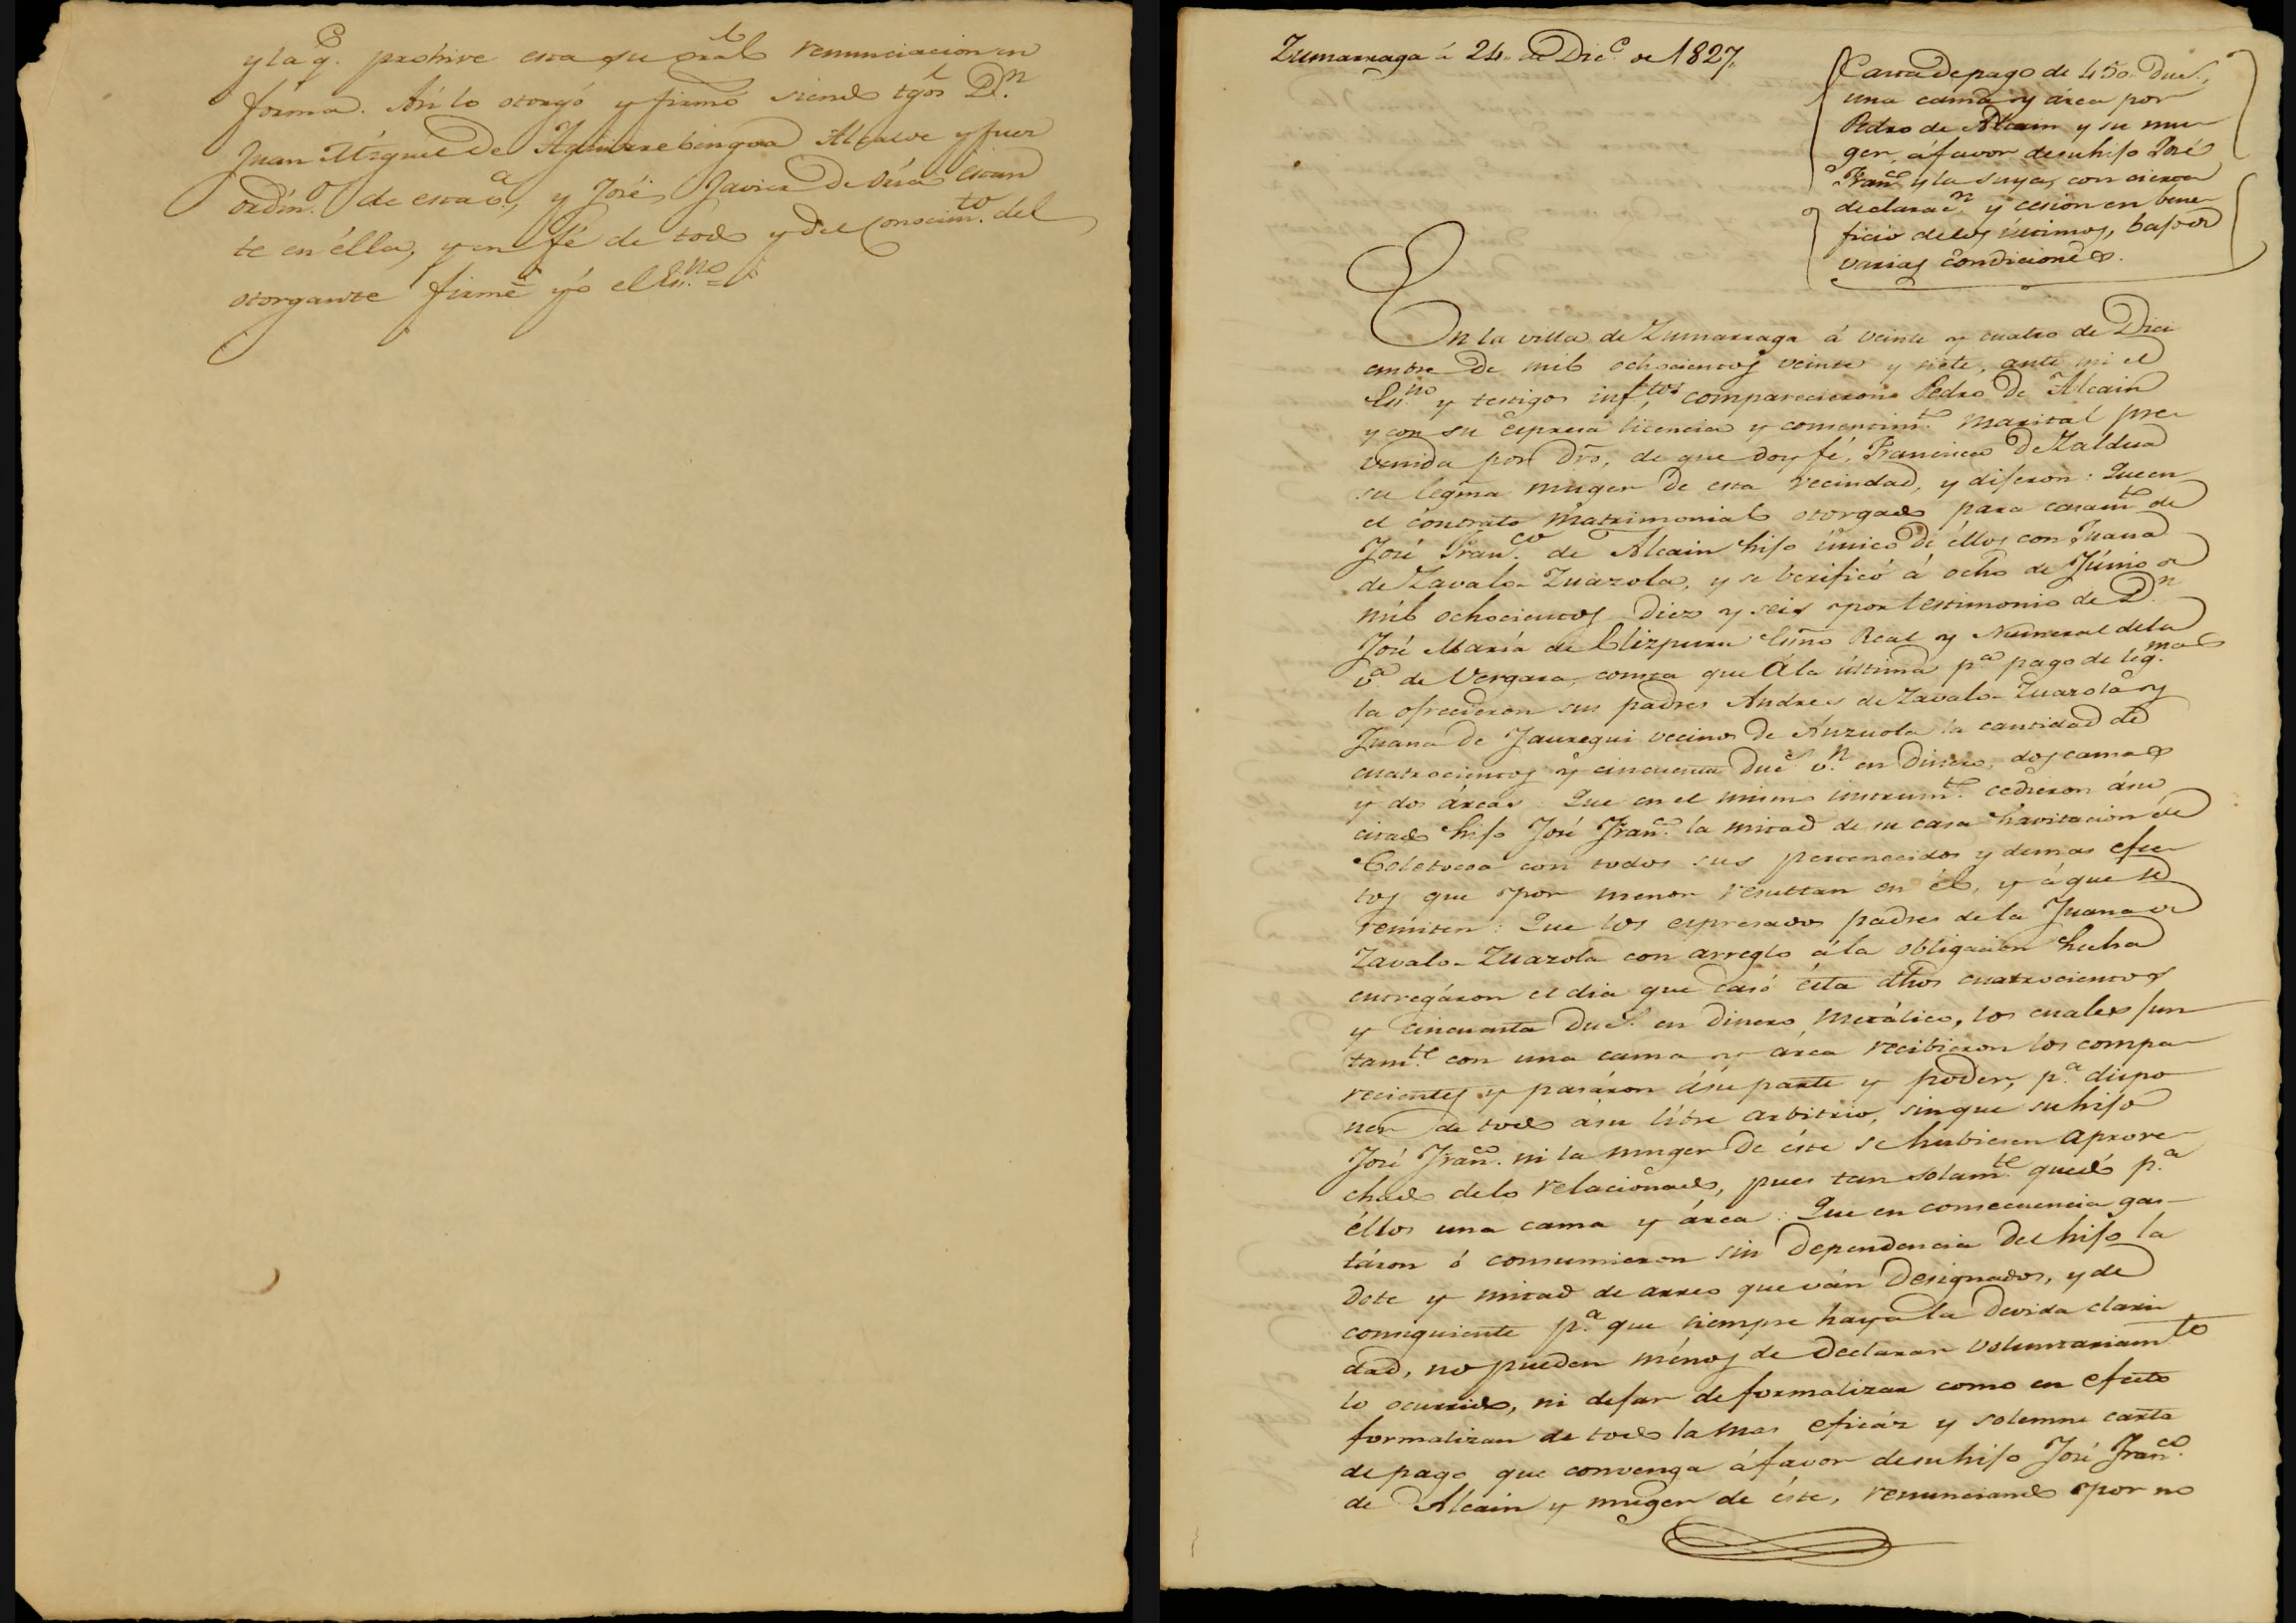 y la q.e prohive esta que gral renunciacion en
forma. Así lo otorgó y firmó siendo tgos D.n
Juan Miguel de Aguirrebengoa Alcalde y juez
ordin.o de esta v.a, y José Javier de estan
te en élla, y en fé de todo y del conocim.to del
otorgante firmé yó el Es.no =
Zumarraga á 24. de Dic.e de 1827.
Carta de pago de 450. Duc.s,
una cama y árca por
Pedro de Alcain y su mu-
ger, á favor de su hijo José
Fran.co y la suya, con cierta
declarac.n y cesion en bene-
ficio de los últimos, bajo de
varias condiciones.
En la villa de Zumarraga á veinte y cuatro de Dici
embre de mil ochocientos veinte y siete, ante mi el
Es.no y testigos inf.tos comparecieron Pedro de Alcain
y con su espresa licencia y consentim.to marital pre-
venida por dro, de que doy fé, Francisca de Zaldua
su legma muger de esta vecindad, y dijeron: Que en
el contrato matrimonial otorgado para casam.to de
José Fran.co de Alcain hijo único de éllos con Juana
de Zavalo-Zuazola, y se verificó á ocho de Júnio de
mil ochocientos diez y seis por testimonio de D.n
José María de Elizpuru Esno Real y Numeral de la
v.a de Vergara, consta que á la última p.a pago de leg.mas
la ofrecieron sus padres Andres de Zavalo-Zuazola y
Juana de Jauregui vecinos de Anzuola la cantidad de
cuatrocientos y cincuenta Duc.s v.n en dinero, dos camas
y dos árcas: Que en el mismo instrum.to cedieron á su
citado hijo José Fran.co la mitad de su casa havitacion de
Celetocoa con todos sus pertenecidos y demas efec-
tos que por menor resultan en él, y á que se
remiten: Que los espresados padres de la Juana de
Zavalo-Zuazola con arreglo á la obligacion hecha
entregáron el dia que casó ésta dhos cuatrocientos
y cincuenta Duc.s en dinero metálico, los cuales jun-
tam.te con una cama y árca recibieron los compa-
recientes y pasáron á su parte y poder, p.a dispo-
ner de todo á su libre arbitrio, sin que su hijo
José Fran.co ni la muger de éste se hubiesen aprove-
chado de lo relacionado, pues tan solam.te quedó p.a
éllos una cama y árca: Que en consecuencia gas-
táron ó consumieron sin dependencia del hijo la
dote y mitad de arreo que ván designados, y de
consiguiente p.a que siempre haya la devida clari-
dad, no pueden ménos de declarar voluntariam.te
lo ocurrido, ni dejar de formalizar como en efecto
formalizan de todo la mas eficáz y solemne carta
de pago que convenga á favor de su hijo José Fran.co
de Alcain y muger de éste, renunciando por no